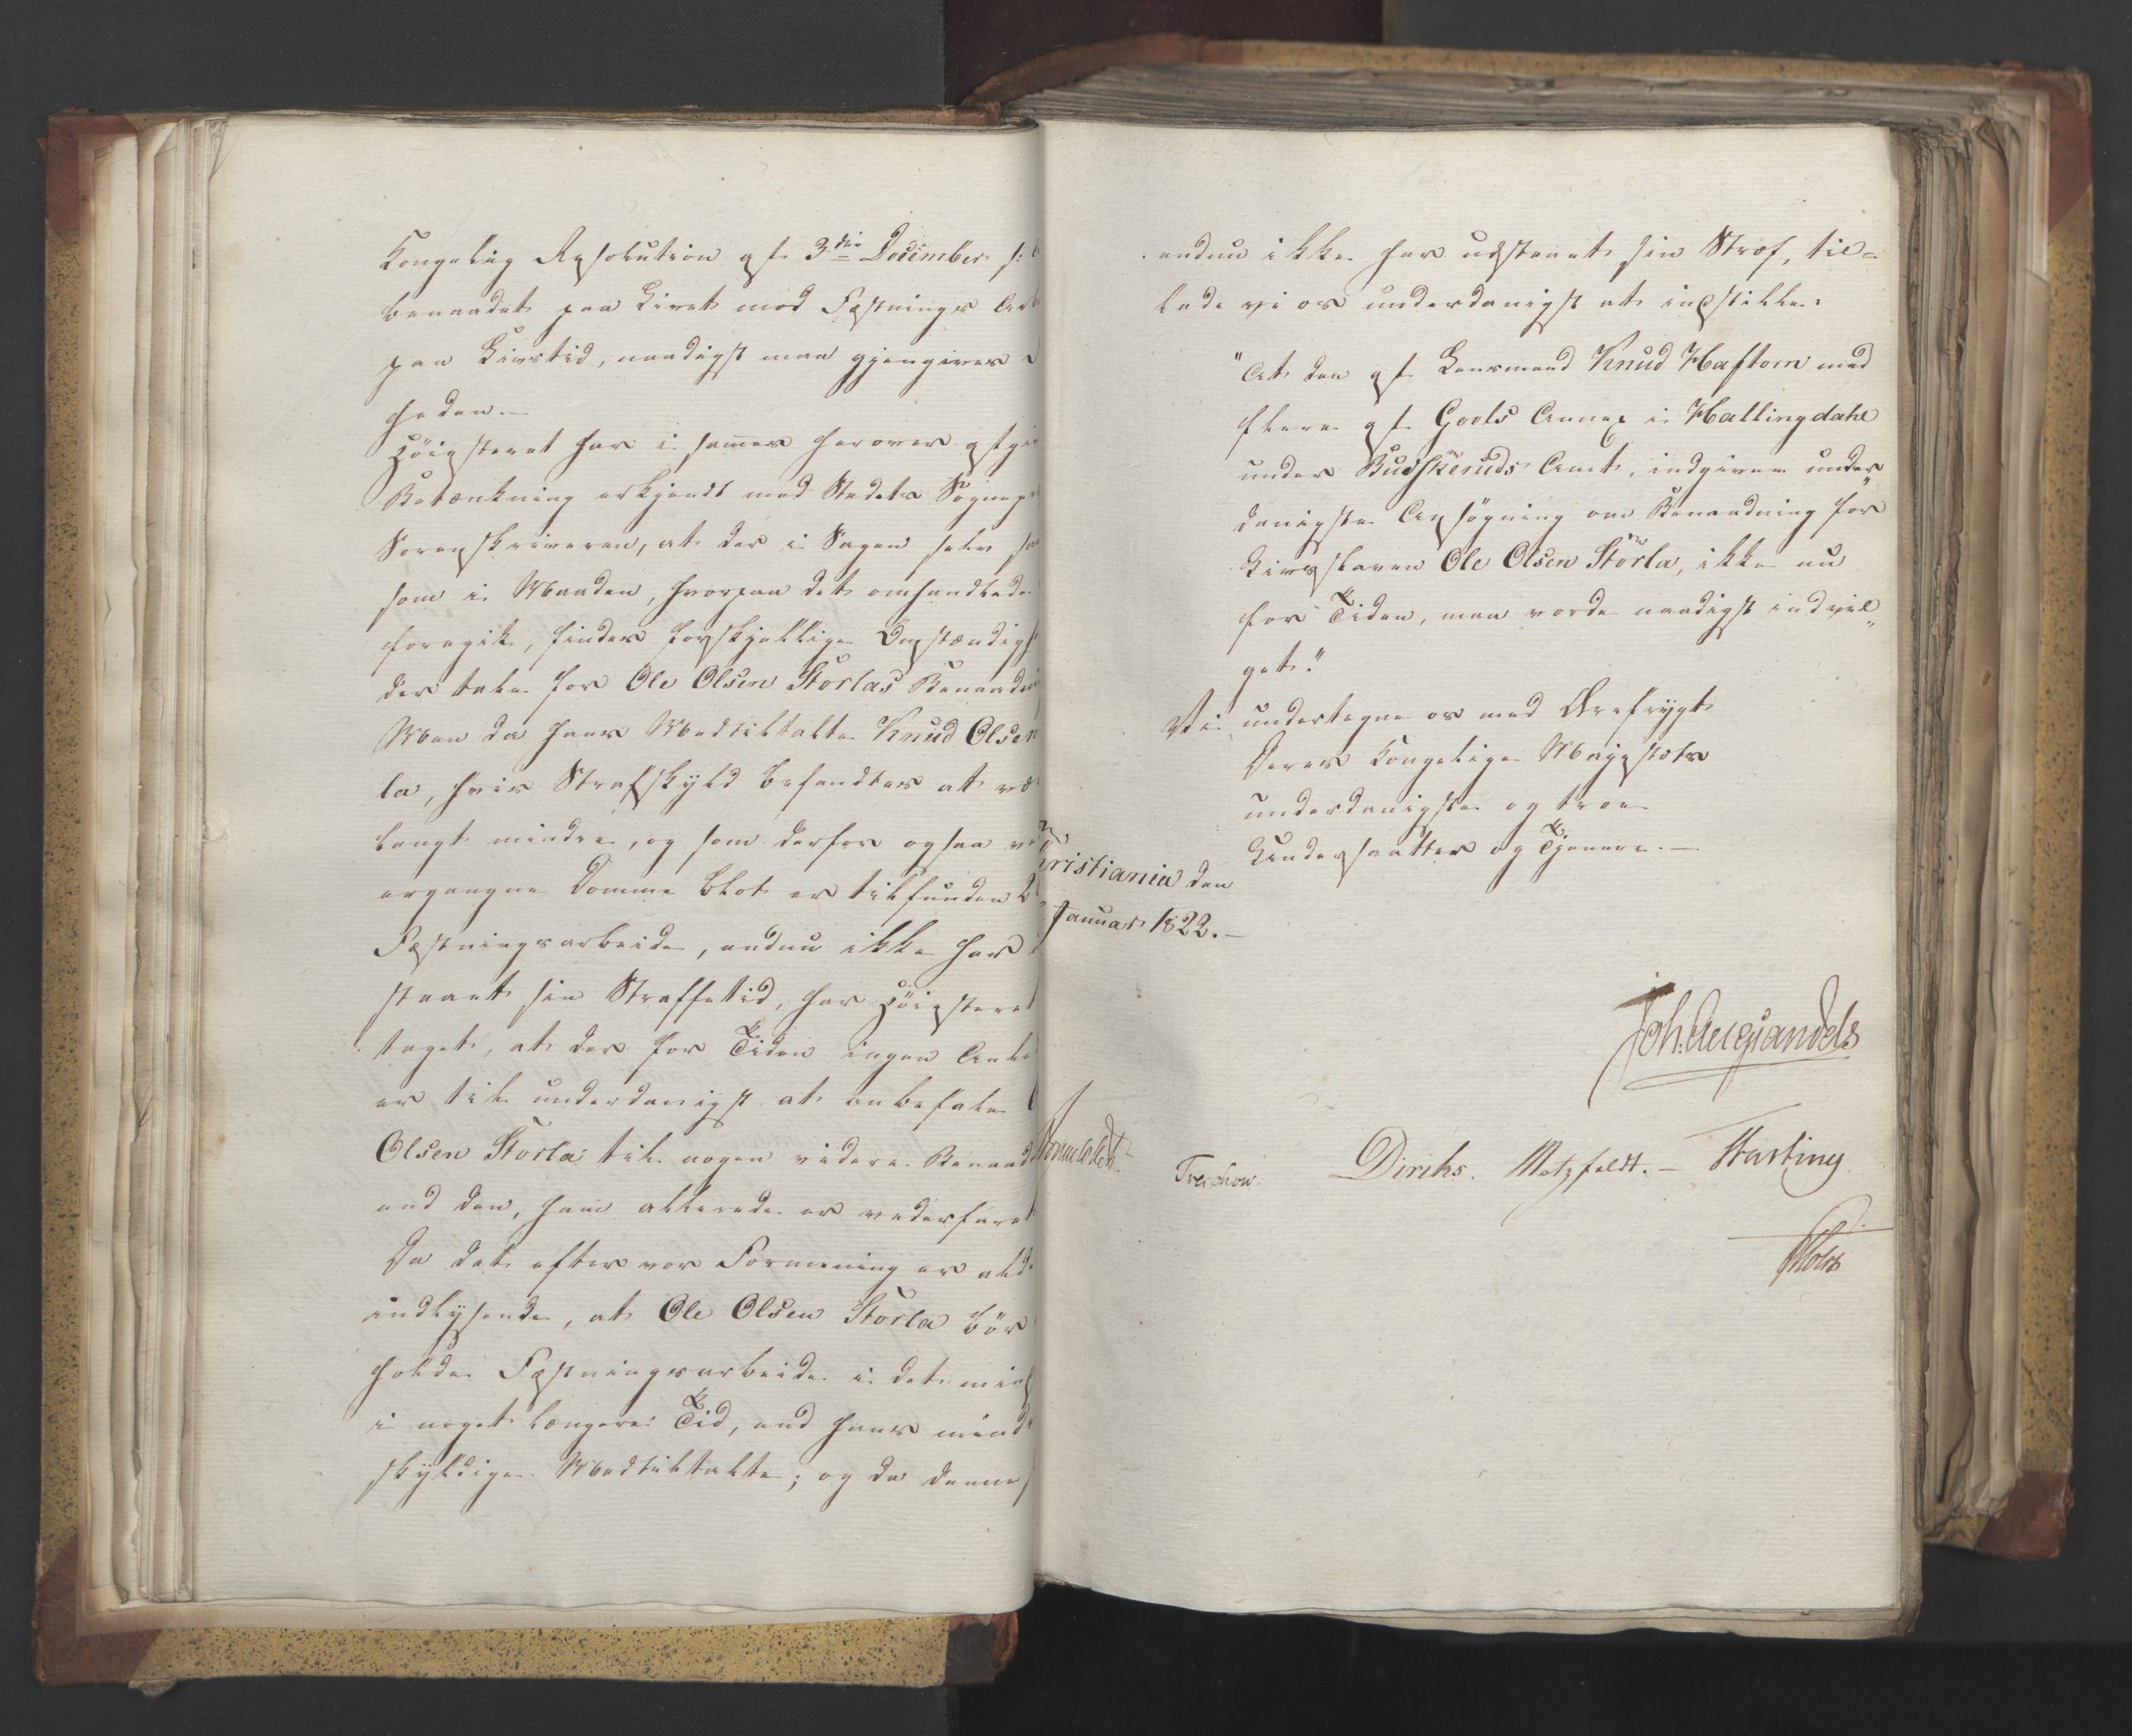 Kongelig Resolution af 3die December s:
benaadet paa Livet mod Fæstnings Arb
paa Livstid, naadigst maa gjengives
heden.-
Höiesteret har i sammes herover afgi
Betænkning erkjendt med Stedets Sognepr
Sorenskriveren, at der i Sagen selv sa
som i Maaden, hvorpaa det omhandlede
foregik, findes forskjellige Omstændigh
der tale for Ole Olsen Storlas Benaadn
Men da hans Medtiltalte Knud Olsen
la, hvis Strafskyld befandtes at væ
langt mindre, og som derfor ogsaa ve
ergangne Domme blot er tilfunden 2
Fæstningsarbeide, endnu ikke har
staaet sin Straffetid, har Höiesteret
taget, at der for Tiden ingen Anle
er til underdanigst at anbefale
Olsen Storla til nogen videre Benaad
end den, ham allerede er vederfaret
Da det efter vor Formening er alde
indlysende, at Ole Olsen Storla bör
holde Fæstningsarbeide i det mind
i noget længere Tid, end hans mind
skyldige Medtiltalte; og da denne
endnu ikke har udstaaet sin Straf, til=
lade vi os underdanigst at indstille:
"At den af Lensmand Knud Haftorn med
flere af Goels Annex i Hallingdahl
under Budskeruds Amt, indgivne under„
danigste Ansögning om Benaadning for
Livsslaven Ole Olsen Störla, ikke nu
for Tiden, maa vorde naadigst indvil„
get."
Vi undertegne os med Ærefrygt
Deres Kongelige Majestæts
underdanigste og troe
Undersaatter og Tjenere.-
ristiania den
Januar 1822.-
Treschow. Diriks. Motzfeldt.- Fasting
Holst